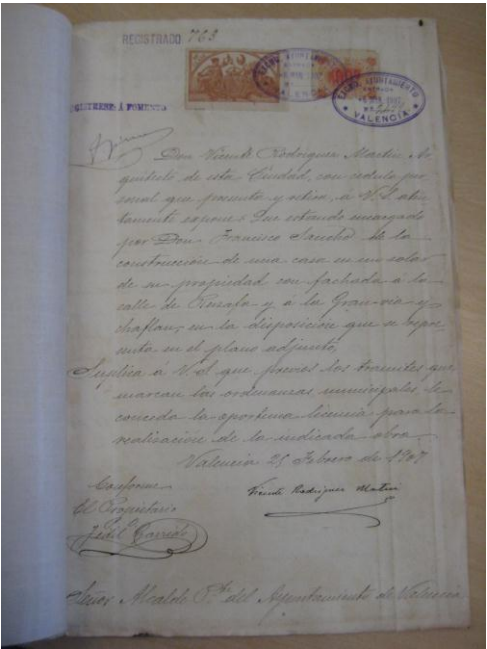 REGISTRADO 763
EXCMO. AYUNTAMIENTO
EXCMO. AYUNTAMIENTO
ENTRADA
VALENCIA
Á FOMENTO
Don Vicente Rodriguez Martin Ar
quitecto de esta Ciudad, con cedula per
sonal que presenta y retira, á V.S. aten
tamente expone: Que estando encargado
por Don Francisco Sancho de la
construcción de una casa en un solar
de su propiedad con fachada á la
calle de Ruzafa y á la Gran-via y
chaflan, en la disposición que se repre
senta en el plano adjunto,
Suplica a V.S. que previos los tramites que
marcan las ordenanzas municipales le
conceda la oportuna licencia para la
realización de la indicada obra
Valencia 25 Febrero de 1907
Conforme
El Propietario
Vicente Rodriguez Martin
Señor Alcalde Pte. del Ayuntamiento de Valencia